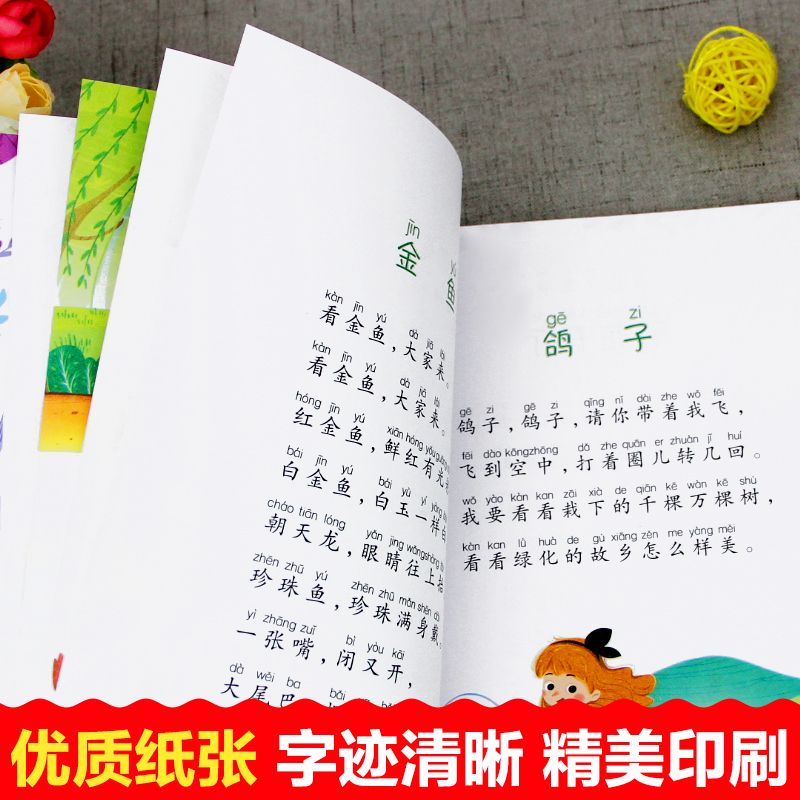 jīn yú
金 鱼
kàn jīn yú dà jiā lái
看金鱼，大家来。
kàn jīn yú dà jiā lái
看金鱼，大家来。
hóng jīn yú xiān hóng yǒu guāng
红金鱼，鲜红有光
bái jīn yú bái yù yí yàng
白金鱼，白玉一样白
cháo tiān lóng yǎn jing wǎng shàng
朝天龙，眼睛往上抬
zhēn zhū yú zhēn zhū mǎn shēn dài
珍珠鱼，珍珠满身戴。
yì zhāng zuǐ bì yòu kāi
一张嘴，闭又开，
dà wěi ba bǎi
大尾巴，
gē zi
鸽 子
gē zi gē zi qǐng nǐ dài zhe wǒ fēi
鸽子，鸽子，请你带着我飞，
fēi dào kōngzhōng dǎ zhe quān er zhuàn jǐ huí
飞到空中，打着圈儿转几回。
wǒ yào kàn kan zāi xià de qiān kē wàn kē shù
我要看看栽下的千棵万棵树，
kàn kan lǜ huà de gù xiāng zěn me yàng měi
看看绿化的故乡怎么样美。
优质纸张 字迹清晰 精美印刷